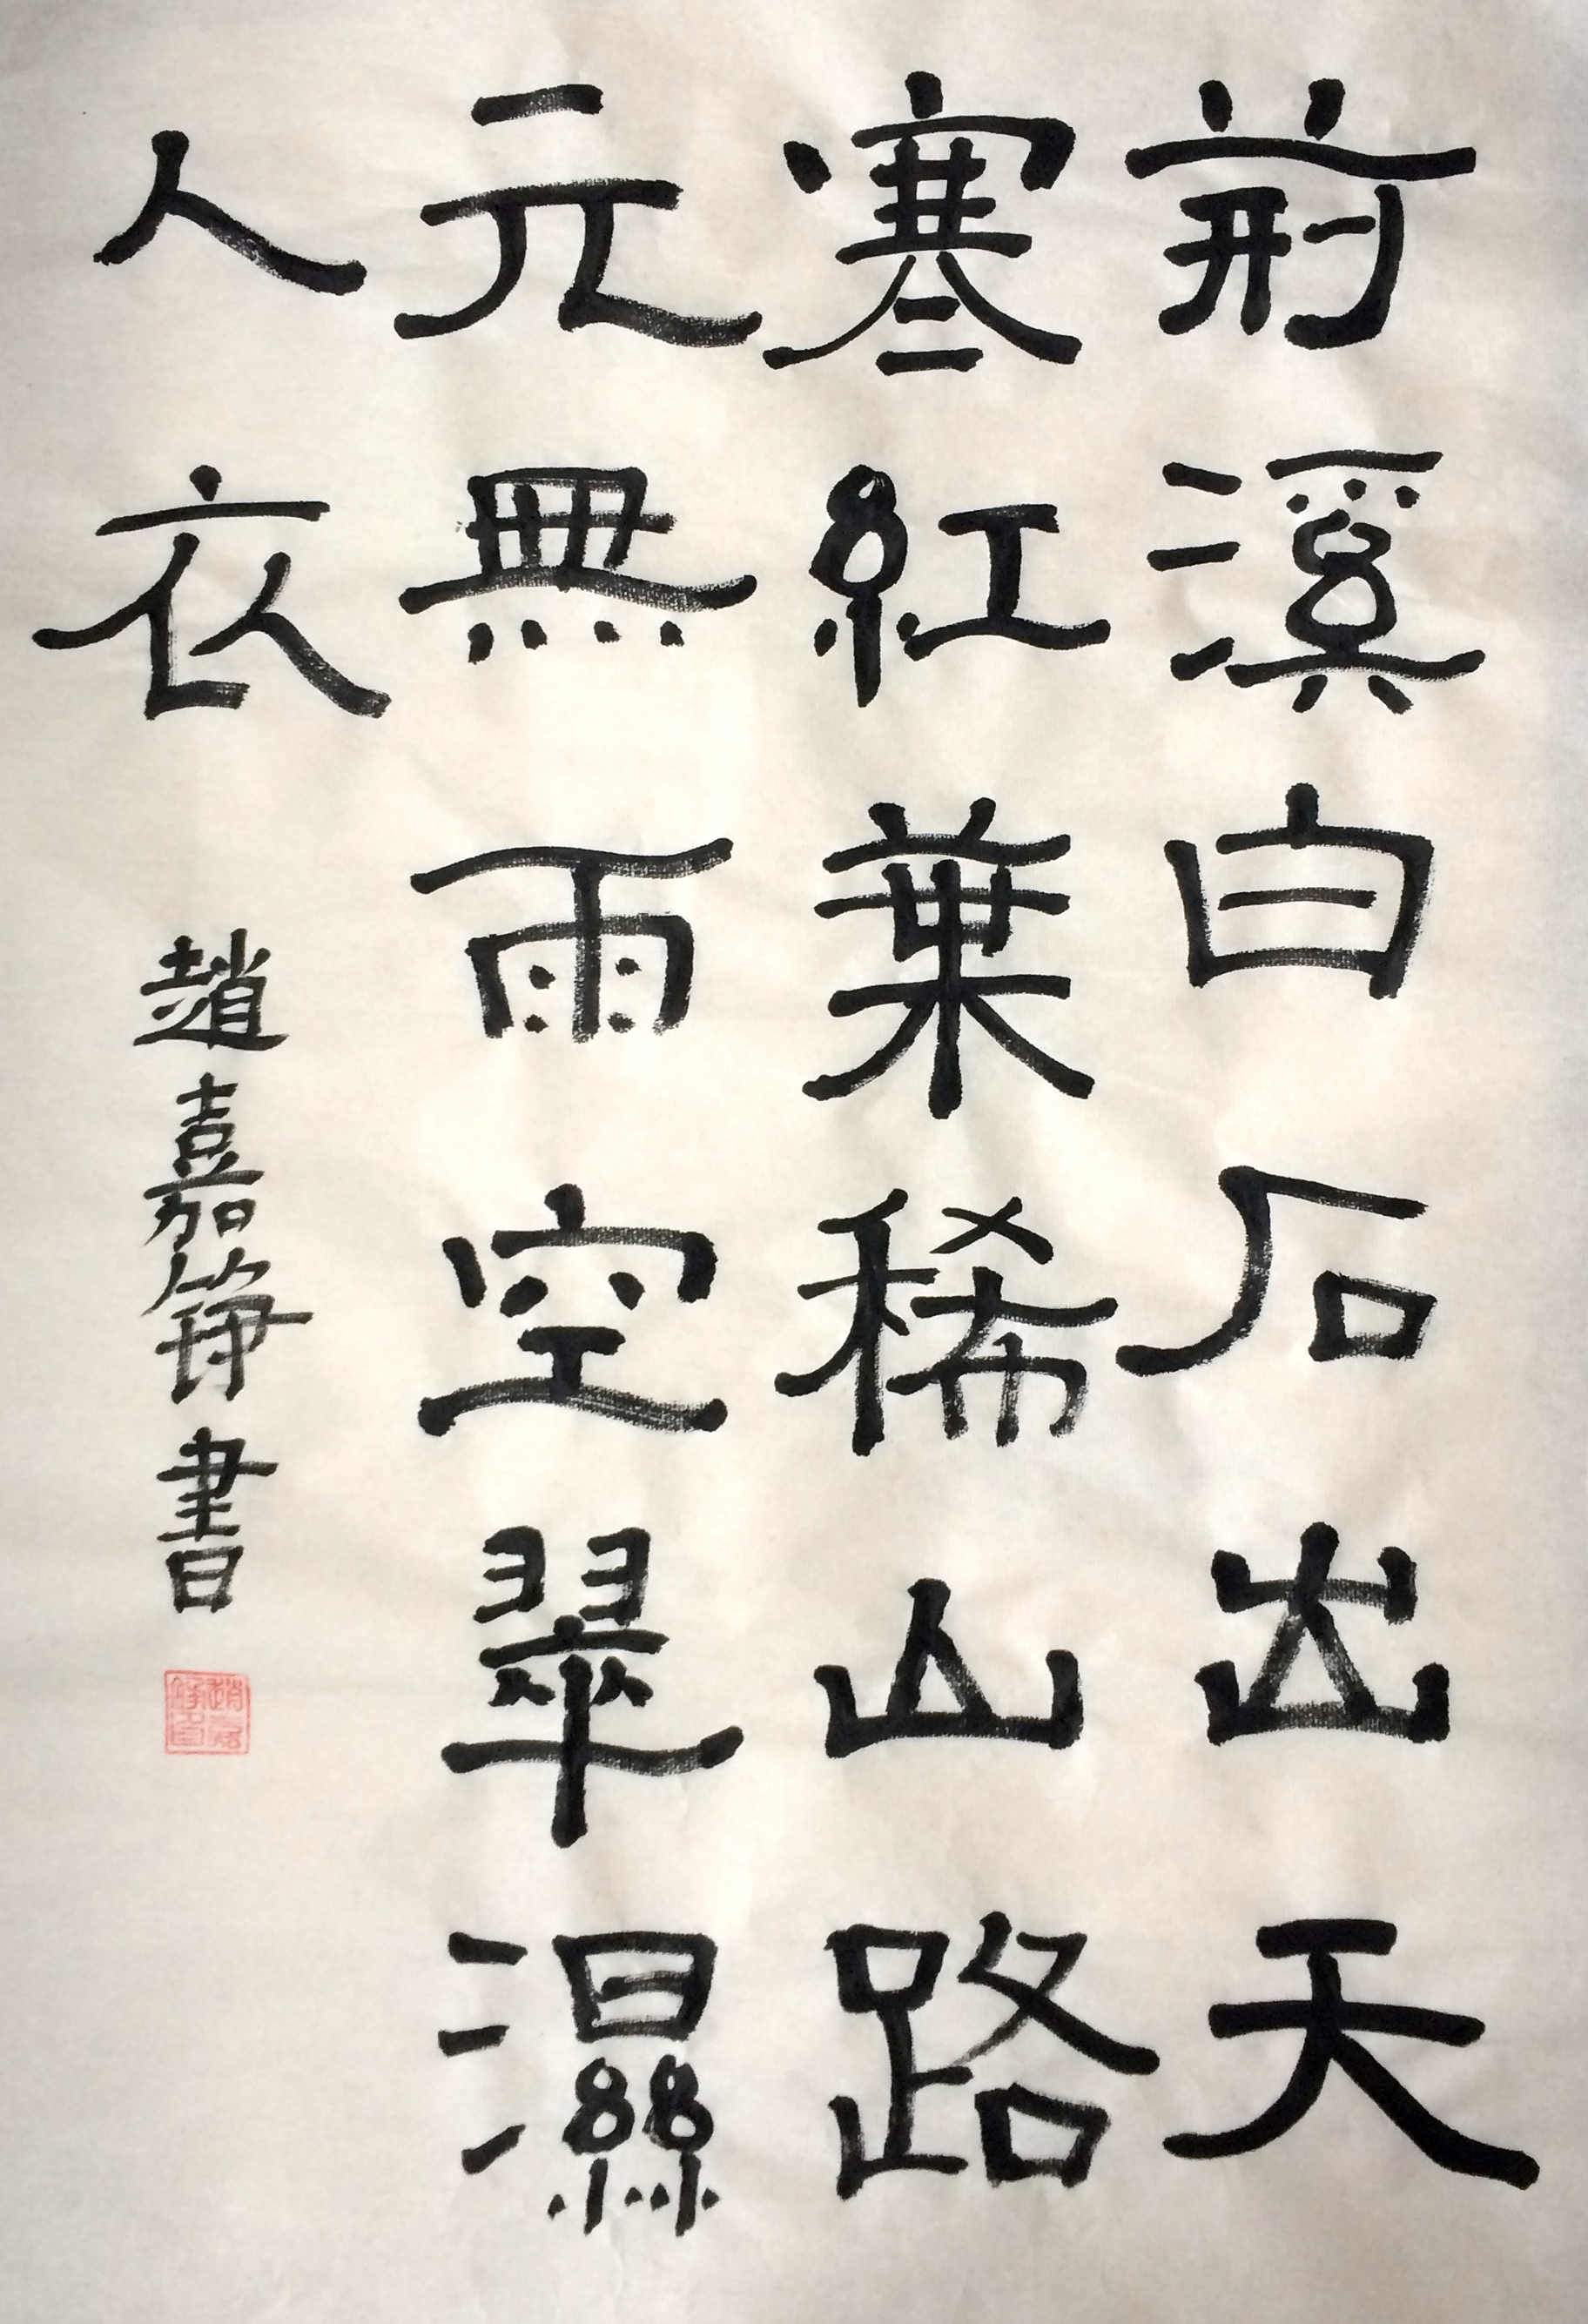 荊溪白石出天
寒紅葉稀山路
元無雨空翠濕
人衣
趙嘉錚書